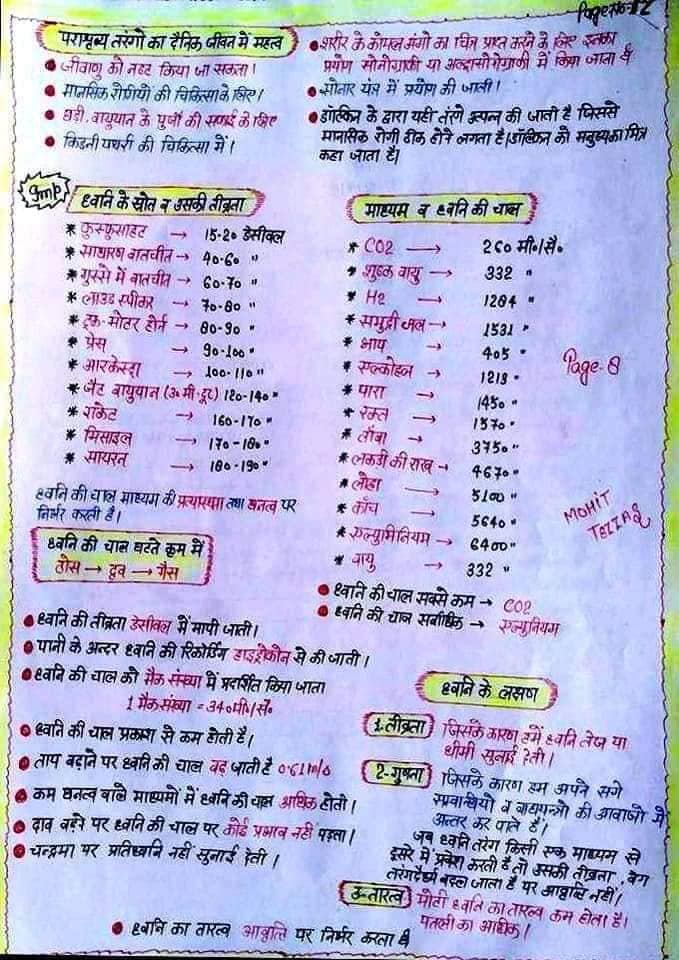 Page No-12
पराश्रव्य तरंगो का दैनिक जीवन में महत्व
जीवाणु को नष्ट किया जा सकता।
मानसिक रोगीयों की चिकित्सा के लिए।
घड़ी, वायुयान के पुर्जो की सफाई के लिए
किडनी पथरी की चिकित्सा में।
शरीर के कोमल अंगो का चित्र प्राप्त करने के लिए इसका
प्रयोग सोनोग्राफी या अल्ट्रासोनोग्राफी में किया जाता है
सोनार यंत्र में प्रयोग की जाती।
डॉल्फिन के द्वारा यही तंरगे उत्पन्न की जाती है जिससे
मानसिक रोगी ठीक होने लगता है।डॉल्फिन को मनुष्य का मित्र
कहा जाता है।
Imp
ध्वनि के स्रोत व उसकी तीव्रता
* फुसफुसाहट → 15-20 डेसीबल
* साधारण बातचीत → 40-60 "
* गुस्से में बातचीत → 60-70 "
* लाउड स्पीकर → 70-80 "
* ट्रक-मोटर हॉर्न → 80-90 "
* प्रेस → 90-100 "
* आरकेस्ट्रा → 100-110 "
* जैट वायुयान (30 मी. दूर) 120-140 "
* रॉकेट → 160-170 "
* मिसाइल → 170-180 "
* सायरन → 180-190 "
ध्वनि की चाल माध्यम की प्रत्यास्थता तथा घनत्व पर
निर्भर करती है।
ध्वनि की चाल घटते क्रम में
ठोस → द्रव → गैस
माध्यम व ध्वनि की चाल
* CO2 → 260 मी०/सै०
* शुष्क वायु → 332 "
* H2 → 1284 "
* समुद्री जल → 1531 "
* भाप → 405 "
* एल्कोहल → 1213 "
* पारा → 1450 "
* रक्त → 1570 "
* ताँबा → 3750 "
* लकडी की राख → 4670 "
* लोहा → 5100 "
* काँच → 5640 "
* एल्युमिनियम → 6400 "
* वायु → 332 "
Page-8
MOHIT
ध्वनि की चाल सबसे कम → CO2
ध्वनि की चाल सर्वाधिक → एल्युनियम
ध्वनि की तीव्रता डेसीबल में मापी जाती।
पानी के अन्दर ध्वनि की रिकोर्डिंग हाइड्रोफोन से की जाती।
ध्वनि की चाल को मैक संख्या में प्रदर्शित किया जाता
1 मैक संख्या = 340मी०/सै०
ध्वनि की चाल प्रकाश से कम होती है।
ताप बढ़ाने पर ध्वनि की चाल बढ़ जाती है 0.61m/s
कम घनत्व वाले माध्यमों में ध्वनि की चाल अधिक होती।
दाव बढ़ने पर ध्वनि की चाल पर कोई प्रभाव नहीं पड़ता।
चन्द्रमा पर प्रतिध्वनि नहीं सुनाई देती।
ध्वनि के लक्षण
1-तीव्रता जिसके कारण हमें ध्वनि तेज या
धीमी सुनाई देती।
2-गुणता जिसके कारण हम अपने सगे
सम्बन्धियों व वाद्ययन्त्रो की आवाजो में
अन्तर कर पाते हैं।
जब ध्वनि तरंग किसी एक माध्यम से
दूसरे में प्रवेश करती है तो उसकी तीव्रता, वेग
तरंगदैर्ध्य बदल जाता है पर आवृत्ति नहीं।
3-तारत्व मोटी ध्वनि का तारत्व कम होता है।
पतली का अधिक।
ध्वनि का तारत्व आवृत्ति पर निर्भर करता है